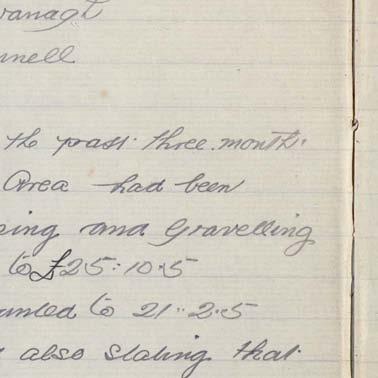 vanagh
nnell
the past three months
Area had been
ping and Gravelling
to £25:10:5
unted to 21:2:5
also stating that